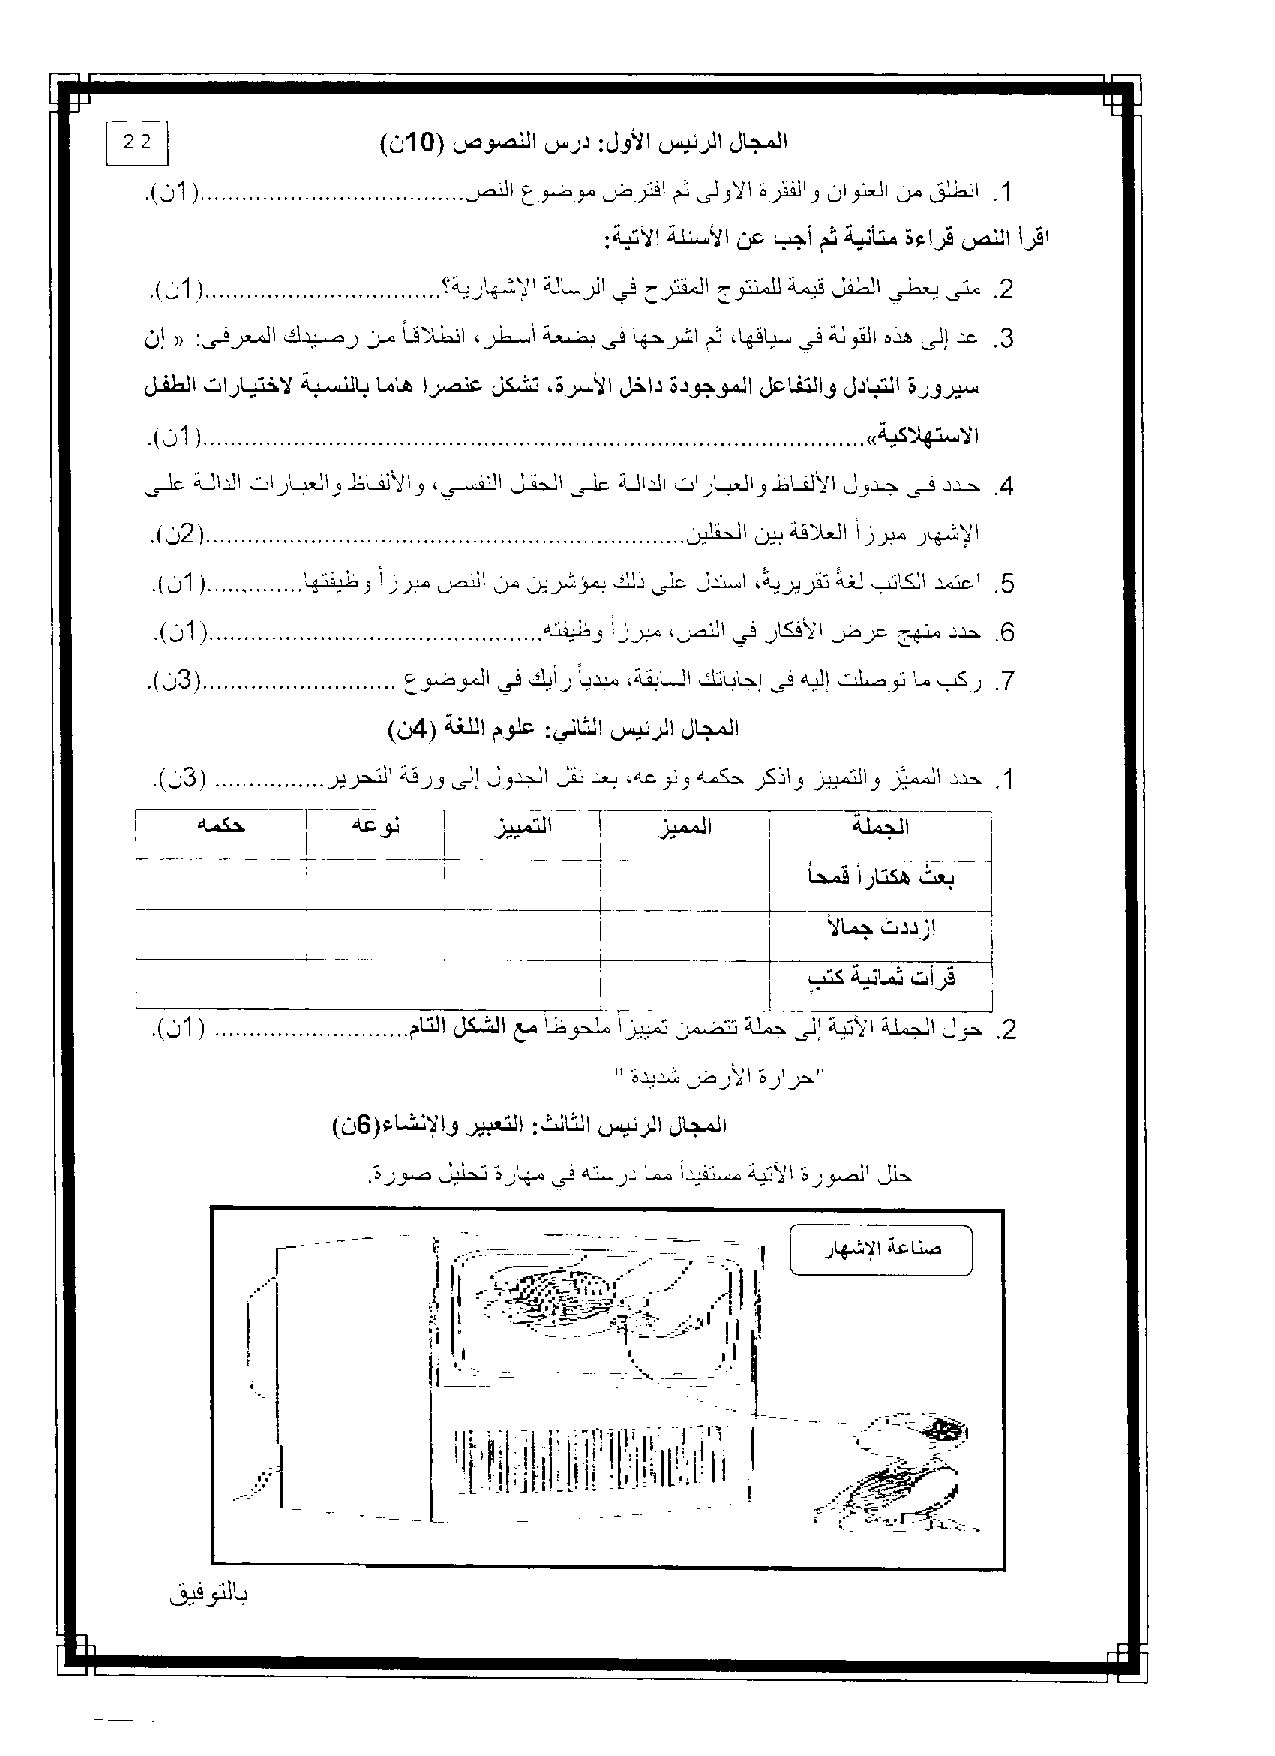 22
المجال الرئيس الأول: درس النصوص (10ن)
1. انطلق من العنوان والفقرة الأولى ثم افترض موضوع النص......................................(1ن).
اقرأ النص قراءة متأنية ثم أجب عن الأسئلة الآتية:
2. متى يعطي الطفل قيمة للمنتوج المقترح في الرسالة الإشهارية؟..................................(1ن).
3. عد إلى هذه القولة في سياقها، ثم اشرحها في بضعة أسطر، انطلاقاً من رصيدك المعرفي: « إن
سيرورة التبادل والتفاعل الموجودة داخل الأسرة، تشكل عنصرا هاما بالنسبة لاختيارات الطفل
الاستهلاكية»................................................................................................(1ن).
4. حدد في جدول الألفاظ والعبارات الدالة على الحقل النفسي، والألفاظ والعبارات الدالة على
الإشهار مبرزاً العلاقة بين الحقلين.....................................................................(2ن).
5. اعتمد الكاتب لغةً تقريريةً، استدل على ذلك بمؤشرين من النص مبرزاً وظيفتها..............(1ن).
6. حدد منهج عرض الأفكار في النص، مبرزاً وظيفته................................................(1ن).
7. ركب ما توصلت إليه في إجاباتك السابقة، مبدياً رأيك في الموضوع ............................(3ن).
المجال الرئيس الثاني: علوم اللغة (4ن)
1. حدد المميَّز والتمييز واذكر حكمه ونوعه، بعد نقل الجدول إلى ورقة التحرير................ (3ن).
الجملة المميز التمييز نوعه حكمه
بعتُ هكتاراً قمحاً
ازددت جمالاً
قرأت ثمانية كتبٍ
2. حوّل الجملة الآتية إلى جملة تتضمن تمييزاً ملحوظاً مع الشكل التام............................ (1ن).
"حرارة الأرض شديدة "
المجال الرئيس الثالث: التعبير والإنشاء(6ن)
حلل الصورة الآتية مستفيداً مما درسته في مهارة تحليل صورة.
صناعة الإشهار
بالتوفيق